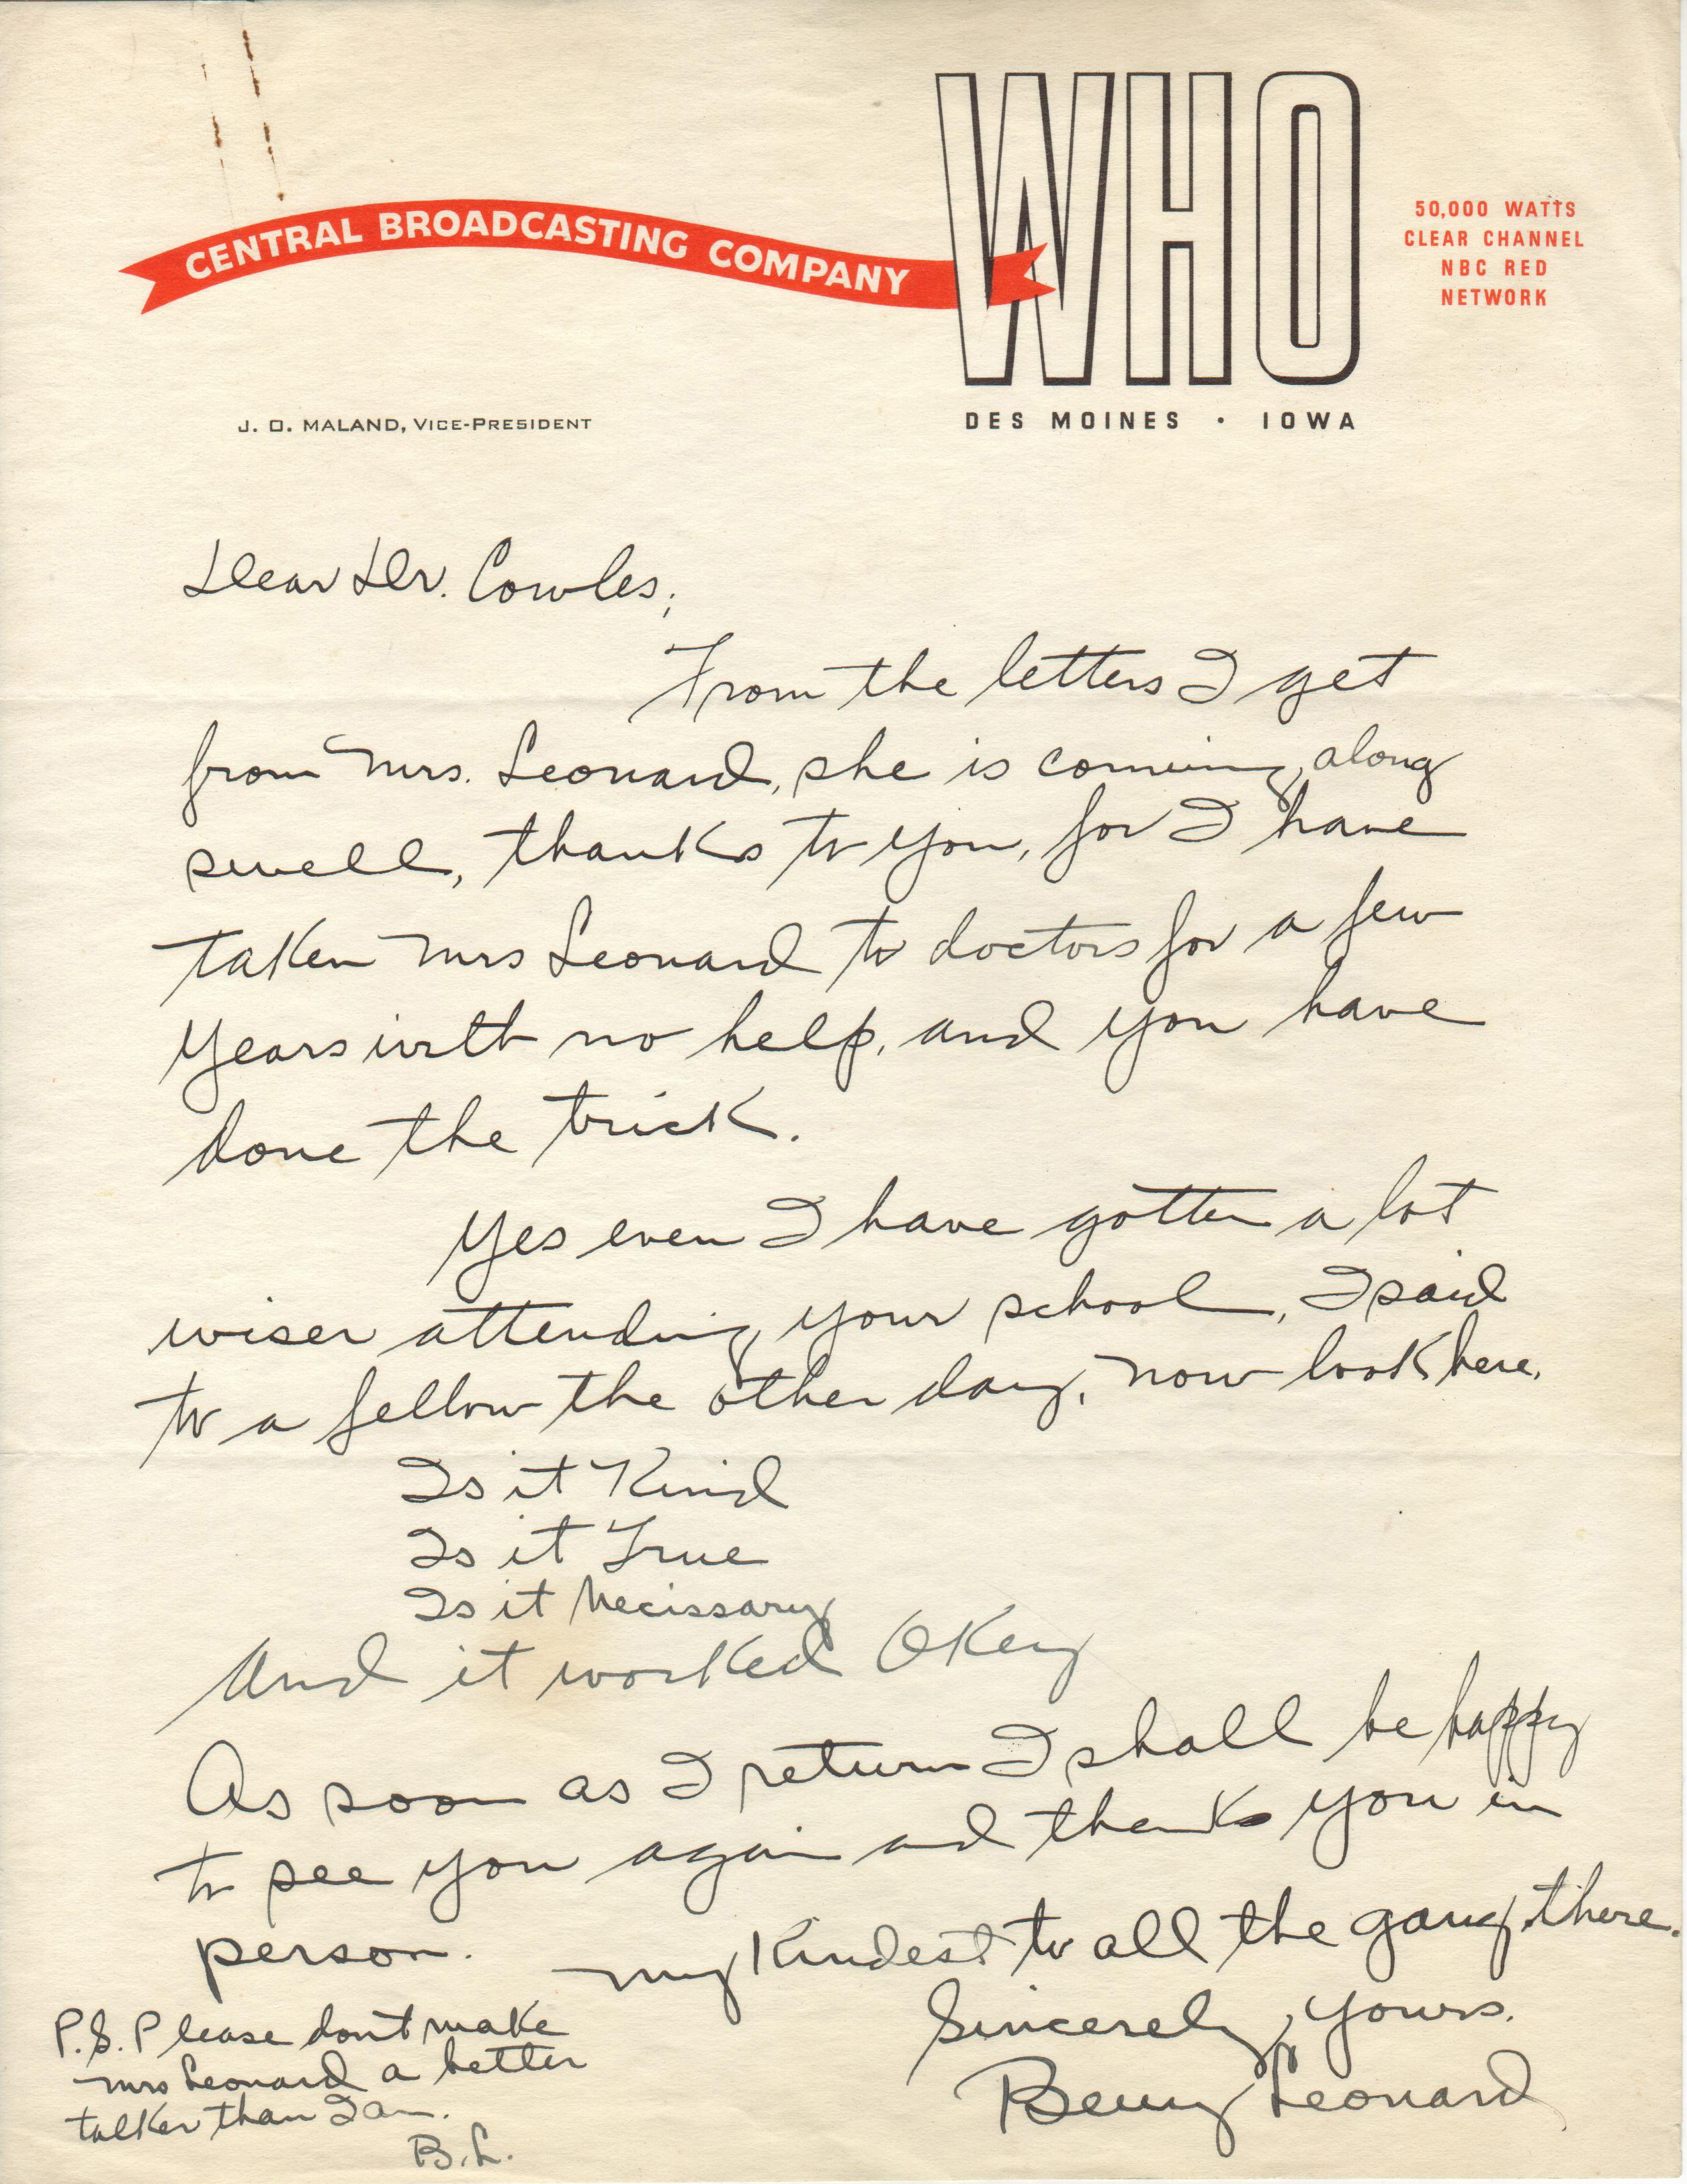 CENTRAL BROADCASTING COMPANY
WHO
50,000 WATTS
CLEAR CHANNEL
NBC RED
NETWORK
J. O. MALAND, VICE-PRESIDENT
DES MOINES · IOWA
Dear Dr. Cowles;
From the letters I get
from Mrs. Leonard, she is coming along
swell, thanks to you, for I have
taken Mrs Leonard to doctors for a few
years with no help, and you have
done the trick.
Yes even I have gotten a lot
wiser attending your school, I said
to a fellow the other day, now look here,
Is it Kind
Is it True
Is it Necissary
And it worked Okey
As soon as I return I shall be happy
to see you again and thanks you in
person.
My Kindest to all the gang there.
Sincerely yours.
Benny Leonard
P.S. Please dont make
Mrs Leonard a better
talker than I am.
B.L.